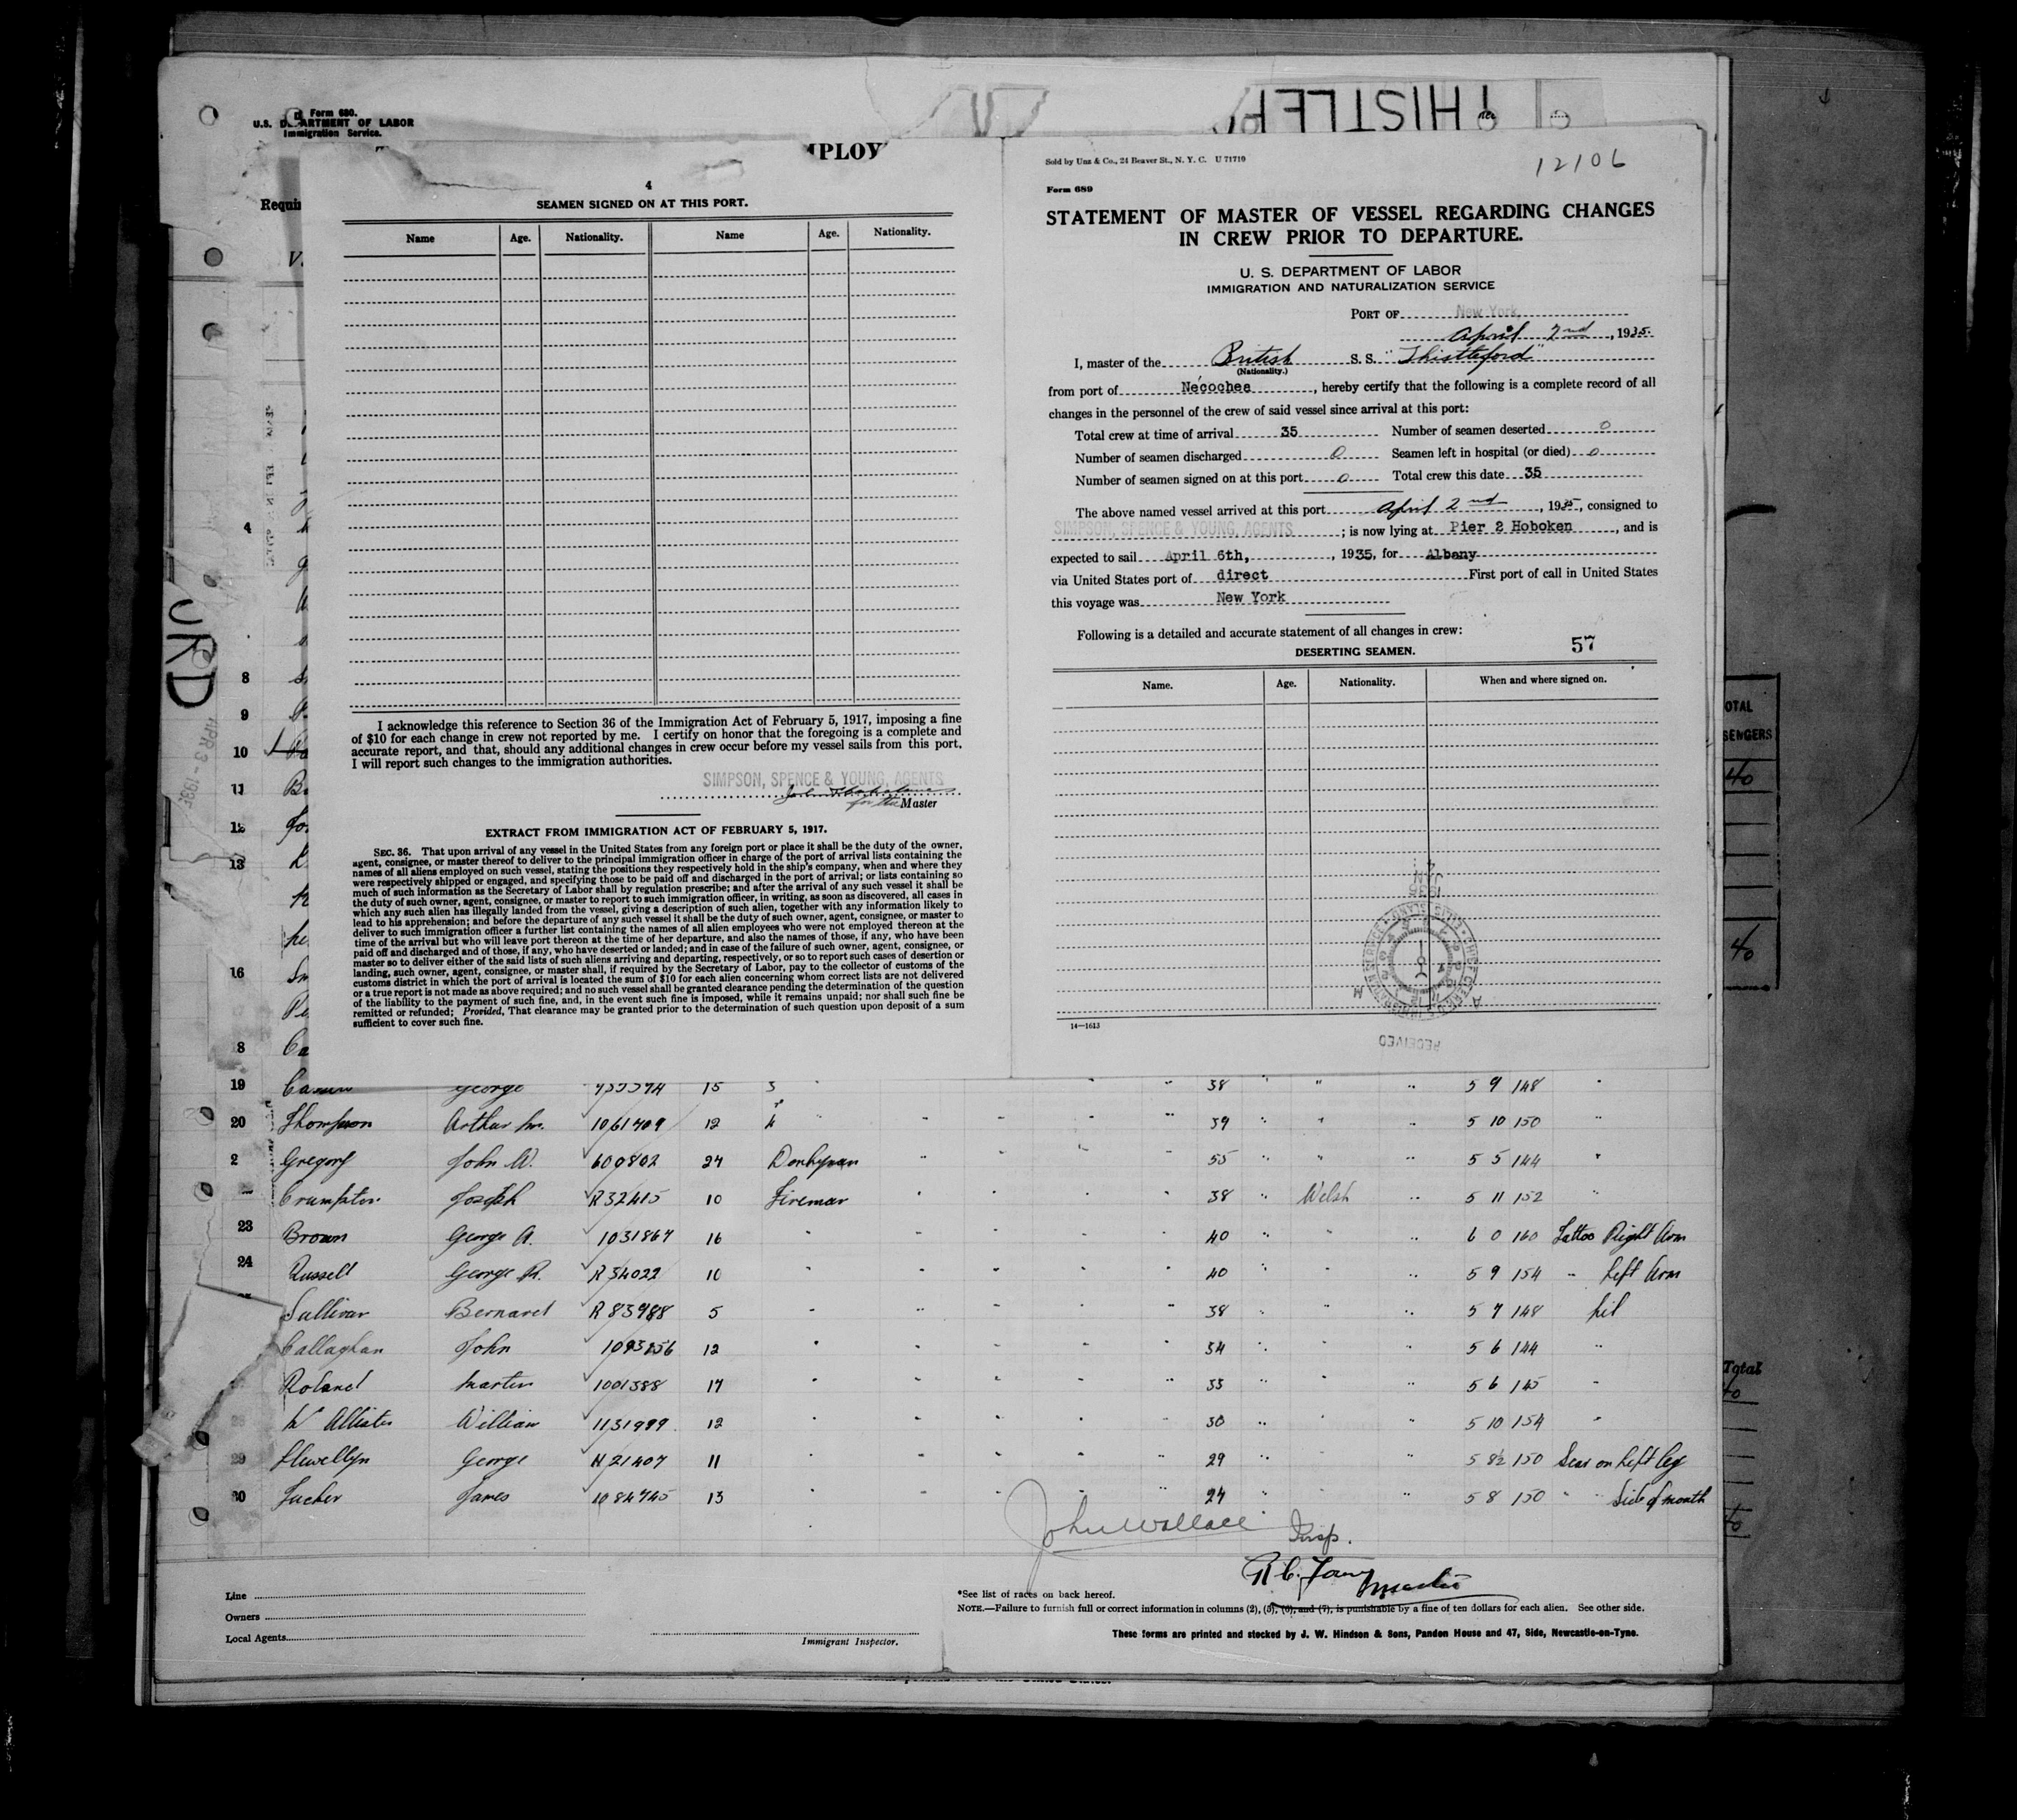 THISTLEF
Form 680.
U.S. DEPARTMENT OF LABOR
Immigration Service.
MPLOY
Requir
URD
APR 3 - 1935
4
SEAMEN SIGNED ON AT THIS PORT.
Name Age. Nationality. Name Age. Nationality.
I acknowledge this reference to Section 36 of the Immigration Act of February 5, 1917, imposing a fine
of $10 for each change in crew not reported by me. I certify on honor that the foregoing is a complete and
accurate report, and that, should any additional changes in crew occur before my vessel sails from this port,
I will report such changes to the immigration authorities.
SIMPSON, SPENCE & YOUNG, AGENTS
for the Master
EXTRACT FROM IMMIGRATION ACT OF FEBRUARY 5, 1917.
SEC. 36. That upon arrival of any vessel in the United States from any foreign port or place it shall be the duty of the owner,
agent, consignee, or master thereof to deliver to the principal immigration officer in charge of the port of arrival lists containing the
names of all aliens employed on such vessel, stating the positions they respectively hold in the ship's company, when and where they
were respectively shipped or engaged, and specifying those to be paid off and discharged in the port of arrival; or lists containing so
much of such information as the Secretary of Labor shall by regulation prescribe; and after the arrival of any such vessel it shall be
the duty of such owner, agent, consignee, or master to report to such immigration officer, in writing, as soon as discovered, all cases in
which any such alien has illegally landed from the vessel, giving a description of such alien, together with any information likely to
lead to his apprehension; and before the departure of any such vessel it shall be the duty of such owner, agent, consignee, or master to
deliver to such immigration officer a further list containing the names of all alien employees who were not employed thereon at the
time of the arrival but who will leave port thereon at the time of her departure, and also the names of those, if any, who have been
paid off and discharged and of those, if any, who have deserted or landed; and in case of the failure of such owner, agent, consignee, or
master so to deliver either of the said lists of such aliens arriving and departing, respectively, or so to report such cases of desertion or
landing, such owner, agent, consignee, or master shall, if required by the Secretary of Labor, pay to the collector of customs of the
customs district in which the port of arrival is located the sum of $10 for each alien concerning whom correct lists are not delivered
or a true report is not made as above required; and no such vessel shall be granted clearance pending the determination of the question
of the liability to the payment of such fine, and, in the event such fine is imposed, while it remains unpaid; nor shall such fine be
remitted or refunded; Provided, That clearance may be granted prior to the determination of such question upon deposit of a sum
sufficient to cover such fine.
Sold by Unz & Co., 24 Beaver St., N. Y. C. U 71710
12106
Form 689
STATEMENT OF MASTER OF VESSEL REGARDING CHANGES
IN CREW PRIOR TO DEPARTURE.
U. S. DEPARTMENT OF LABOR
IMMIGRATION AND NATURALIZATION SERVICE
PORT OF New York,
April 2nd, 1935.
I, master of the British S. S. "Thistleford"
(Nationality.)
from port of Necochea, hereby certify that the following is a complete record of all
changes in the personnel of the crew of said vessel since arrival at this port:
Total crew at time of arrival 35 Number of seamen deserted 0
Number of seamen discharged 0 Seamen left in hospital (or died) 0
Number of seamen signed on at this port 0 Total crew this date 35
The above named vessel arrived at this port April 2nd, 1935, consigned to
SIMPSON, SPENCE & YOUNG, AGENTS; is now lying at Pier 2 Hoboken, and is
expected to sail April 6th, 1935, for Albany
via United States port of direct First port of call in United States
this voyage was New York
Following is a detailed and accurate statement of all changes in crew:
57
DESERTING SEAMEN.
Name. Age. Nationality. When and where signed on.
1935
JAN
RECEIVED
14—1613
OTAL
SENGERS
40
40
4
8
9
10
11
12
13
16
8
19 George 15 38 " 5 9 148 "
20 Thompson Arthur 1061409 12 " 39 " " " 5 10 150 "
2 Gregory John W. 600802 24 Donkyman " 55 " " " 5 5 144 "
Crumpton Joseph R32415 10 Fireman " 38 " Welsh " 5 11 152 "
23 Brown George A. 1031867 16 " 40 " " " 6 0 160 Tattoo Right Arm
24 Russell George R. R34022 10 " 40 " " " 5 9 154 " Left Arm
Sullivan Bernard R83988 5 " 38 " " " 5 7 148 Nil
Callaghan John 12 " 34 " " 5 6 144 "
Roland Martin 1001388 17 " 33 " " " 5 6 145 "
William 1131999 12 " 30 " " " 5 10 154 "
29 Llewellyn George 21407 11 " 29 " " " 5 8½ 150 Scar on Left Leg
30 James 1084745 13 " 24 " " " 5 8 150 " " Side of mouth
John Wallace Insp.
Total
40
40
Line
Owners
Local Agents
Immigrant Inspector.
Master
*See list of races on back hereof.
NOTE.—Failure to furnish full or correct information in columns (2), (3), (6), and (7), is punishable by a fine of ten dollars for each alien. See other side.
These forms are printed and stocked by J. W. Hindson & Sons, Pandon House and 47, Side, Newcastle-on-Tyne.